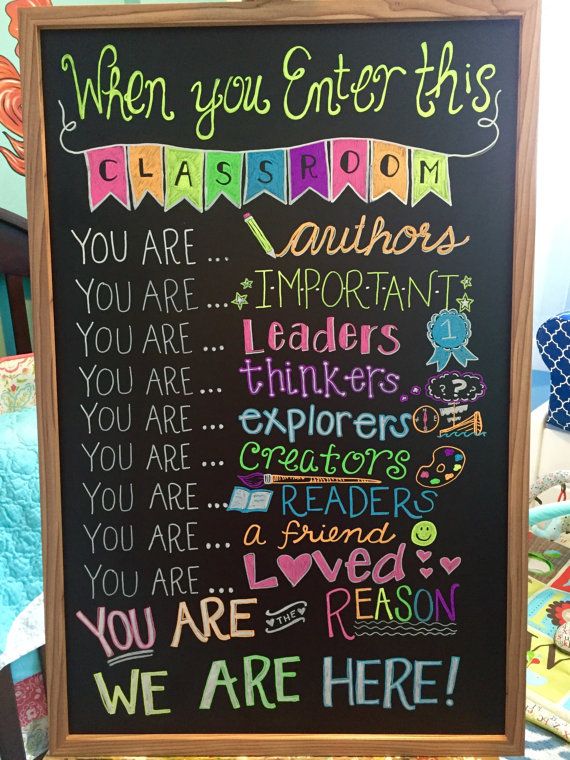 When you Enter this
CLASSROOM
YOU ARE ... authors
YOU ARE ... I·M·P·O·R·T·A·N·T
YOU ARE ... Leaders 1
YOU ARE ... thinkers ?
YOU ARE ... explorers
YOU ARE ... Creators
YOU ARE ... READERS
YOU ARE ... a friend
YOU ARE ... Loved
YOU ARE THE REASON
WE ARE HERE!